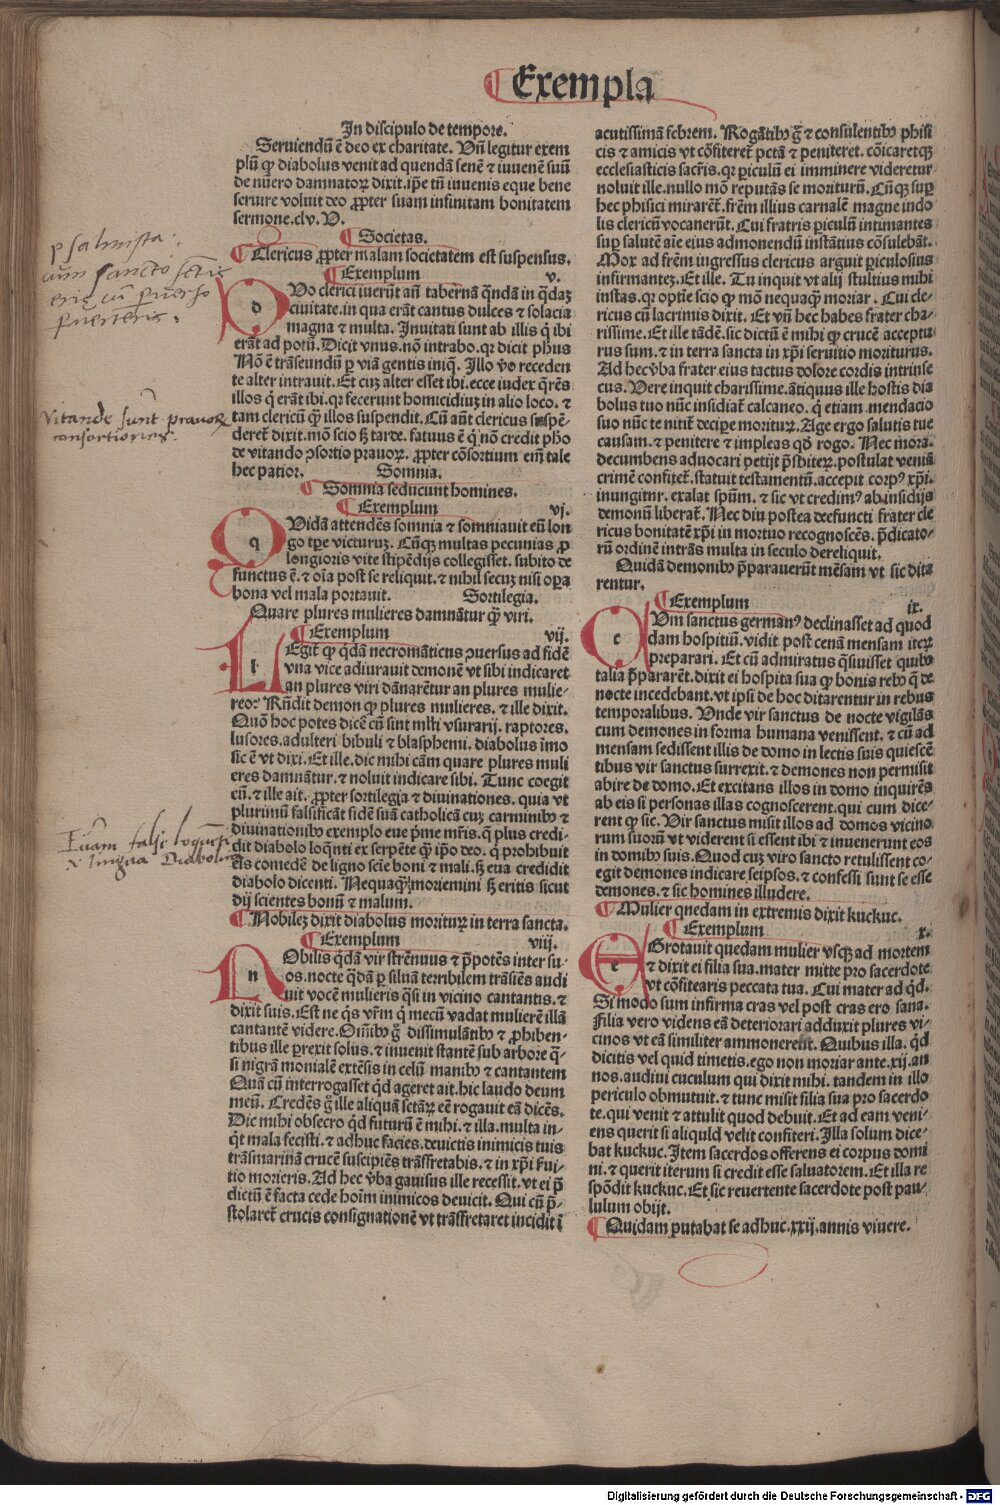 Exempla
In discipulo de tempore.
Seruiendū ē deo ex charitate. Vñ legitur exem
plū ꝙ diabolus venit ad quendā senē ⁊ iuuenē suū
de nūero damnatoꝝ dixit.ip̄e tñ iuuenis eque bene
seruire voluit deo ꝓpter suam infinitam bonitatem
sermone.clv. V.
¶ Societas.
¶ Clericus ꝓpter malam societatem est suspensus.
¶ Exemplum v.
dVo clerici iuerūt añ tabernā q̄ndā in q̄daꝫ
ciuitate.in qua erāt cantus dulces ⁊ solacia
magna ⁊ multa. Inuitati sunt ab illis q̄ ibi
erāt ad potū. Dicit vnus.nō intrabo.qꝛ dicit ph̄us
Nō ē trāseundū ꝑ viā gentis iniq̄. Illo v̄o receden
te alter intrauit.Et cuꝫ alter esset ibi.ecce iudex q̄rēs
illos q̄ erāt ibi.qꝛ fecerunt homicidiuꝫ in alio loco.⁊
tam clericū q̄ꝫ illos suspendit. Cū aūt clericus suspē-
deret̄ dixit.mō scio sꝫ tarde. fatuus ē q̄ nō credit ph̄o
de vitando ↄsortio prauoꝝ. ꝓpter cōsortium em̄ tale
hec patior. Somnia.
¶ Somnia seducunt homines.
¶ Exemplum vj.
qVidā attendēs somnia ⁊ somniauit eū lon
go tp̄e victuruꝫ. Cūqꝫ multas pecunias ꝓ
longioris vite stipēdijs collegisset. subito de
functus ē.⁊ oīa post se reliquit.⁊ nihil secuꝫ nisi oꝑa
bona vel mala portauit. Sortilegia.
Quare plures mulieres damnātur q̄ꝫ viri.
¶ Exemplum vij.
lEgit̄ ꝙ q̄dā necromāticus ↄuersus ad fidē
vna vice adiurauit demonē vt sibi indicaret
an plures viri dānarētur an plures mulie-
res? Rn̄dit demon ꝙ plures mulieres.⁊ ille dixit.
Quō hoc potes dicē cū sint ml̄ti vsurarij. raptores.
lusores.adulteri bibuli ⁊ blasphemi. diabolus īmo
sic ē vt dixi.Et ille.dic mihi cām quare plures muli
eres damnātur.⁊ noluit indicare sibi. Tunc coegit
eū.⁊ ille ait. ꝓpter sortilegia ⁊ diuinationes. quia vt
plurimū falsificāt fidē suā catholicā cuꝫ carminibꝰ ⁊
diuinationibꝰ exemplo eue p̄me mr̄is.q̄ plus credi-
dit diabolo loq̄nti ex serpēte q̄ꝫ ip̄o deo. q̄ prohibuit
eis comedē de ligno sciē boni ⁊ mali.sꝫ eua credidit
diabolo dicenti. Nequaq̄ꝫ moriemini sꝫ eritis sicut
dij scientes bonū ⁊ malum.
¶ Nobileꝫ dixit diabolus moritur̄ in terra sancta.
¶ Exemplum viij.
nObilis q̄dā vir strēnuus ⁊ p̄potēs inter su-
os.nocte q̄dā ꝑ siluā terribilem trāsiēs audi
uit vocē mulieris q̄si in vicino cantantis.⁊
dixit suis.Est ne q̄s vr̄m q̄ mecū vadat mulierē illā
cantantē videre. Om̄ibꝰ g̊ dissimulātibꝰ ⁊ ꝓhiben-
tibus ille ꝑrexit solus.⁊ inuenit stantē sub arbore q̄-
si nigrā monialē extēsis in celū manibꝰ ⁊ cantantem
Quā cū interrogasset q̄d ageret ait.hic laudo deum
meū. Credēs g̊ ille aliquā sctāꝝ eē rogauit eā dicēs.
Dic mihi obsecro q̄d futurū ē mihi.⁊ illa.multa in-
q̄t mala fecisti.⁊ adhuc facies.deuictis inimicis tuis
trāsmarinā crucē suscipiēs trāsfretabis.⁊ in xp̄i ẜui-
tio morieris.Ad hec ꝟba gauisus ille recessit.vt ei p̄
dictū ē facta cede hoīm inimicos deuicit. Qui cū p̄-
stolaret̄ crucis consignationē vt trāsfretaret incidit ī
acutissimā febrem. Rogātibꝰ g̊ ⁊ consulentibꝰ phisi
cis ⁊ amicis vt cōfiteret̄ pctā ⁊ peniteret. cōicaretqꝫ
ecclesiasticis sacr̄is.qꝛ ꝑiculū ei imminere videretur
noluit ille.nullo mō reputās se moriturū. Cūqꝫ suꝑ
hec phisici mirarēt̄.fr̄em illius carnalē magne indo
lis clericū vocauerūt. Cui fratris ꝑiculū intimantes
suꝑ salutē aīe eius admonendū instātius cōsulebāt.
Mox ad fr̄em ingressus clericus arguit ꝑiculosius
infirmantez.Et ille. Tu inquit vt alij stultius mihi
instas.qꝛ optīe scio ꝙ mō nequaq̄ꝫ moriar. Cui cle-
ricus cū lacrimis dixit. Et vñ hec habes frater cha-
rissime.Et ille tādē.sic dictū ē mihi ꝙ crucē acceptu
rus sum.⁊ in terra sancta in xp̄i seruitio moriturus.
Ad hec ꝟba frater eius tactus dolore cordis intrinse
cus. Vere inquit charissime.ātiquus ille hostis dia
bolus tuo nūc insidiat̄ calcaneo. q̄ etiam mendacio
suo nūc te nitit̄ deciꝑe moritur̄. Age ergo salutis tue
causam.⁊ penitere ⁊ impleas qd̄ rogo. Nec mora.
decumbens aduocari petijt p̄sbiteꝝ.postulat veniā
crimē confitet̄.statuit testamentū.accepit corpꝰ xp̄i.
inungitur. exalat spūm.⁊ sic vt credimꝰ ab insidijs
demonū liberat̄. Nec diu postea defuncti frater cle
ricus bonitatē xp̄i in mortuo recognoscēs. p̄dicato-
rū ordinē intrās multa in seculo dereliquit.
Quidā demonibꝰ p̄parauerūt mēsam vt sic dita
rentur.
¶ Exemplum ix.
cVm sanctus germanꝰ declinasset ad quod
dam hospitiū. vidit post cenā mensam iteꝝ
preparari. Et cū admiratus q̄siuisset quibꝰ
talia p̄pararēt̄.dixit ei hospita sua ꝙ bonis rebꝰ q̄ de
nocte incedebant.vt ipsi de hoc ditarentur in rebus
temporalibus. Vnde vir sanctus de nocte vigilās
cum demones in forma humana venissent.⁊ cū ad
mensam sedissent illis de domo in lectis suis quiescē
tibus vir sanctus surrexit.⁊ demones non permisit
abire de domo.Et excitans illos in domo inquirēs
ab eis si personas illas cognoscerent.qui cum dice-
rent ꝙ sic. Vir sanctus misit illos ad domos vicino
rum suorū vt viderent si essent ibi ⁊ inuenerunt eos
in domibꝰ suis. Quod cuꝫ viro sancto retulissent co-
egit demones indicare seipsos.⁊ confessi sunt se esse
demones.⁊ sic homines illudere.
¶ Mulier quedam in extremis dixit kuckuc.
¶ Exemplum x.
eGrotauit quedam mulier vsqꝫ ad mortem
⁊ dixit ei filia sua.mater mitte pro sacerdote
vt cōfitearis peccata tua. Cui mater ad q̄d.
Si modo sum infirma cras vel post cras ero sana.
Filia vero videns eā deteriorari adduxit plures vi-
cinos vt eā similiter ammonerent. Quibus illa. q̄d
dicitis vel quid timetis.ego non moriar ante.xij.an
nos.audiui cuculum qui dixit mihi. tandem in illo
periculo obmutuit.⁊ tunc misit filia sua pro sacerdo
te.qui venit ⁊ attulit quod debuit.Et ad eam veni-
ens querit si aliquid velit confiteri. Illa solum dice-
bat kuckuc. Item sacerdos offerens ei corpus domi
ni.⁊ querit iterum si credit esse saluatorem. Et illa re
spōdit kuckuc.Et sic reuertente sacerdote post pau-
lulum obijt.
¶ Quidam putabat se adhuc.xxij.annis viuere.
psalmista:
cum sancto
eris cū peruerso
peruerteris.
Vitande sunt prauoꝝ
consortiones.
falsi
lingua Diaboli
Digitalisierung gefördert durch die Deutsche Forschungsgemeinschaft - DFG